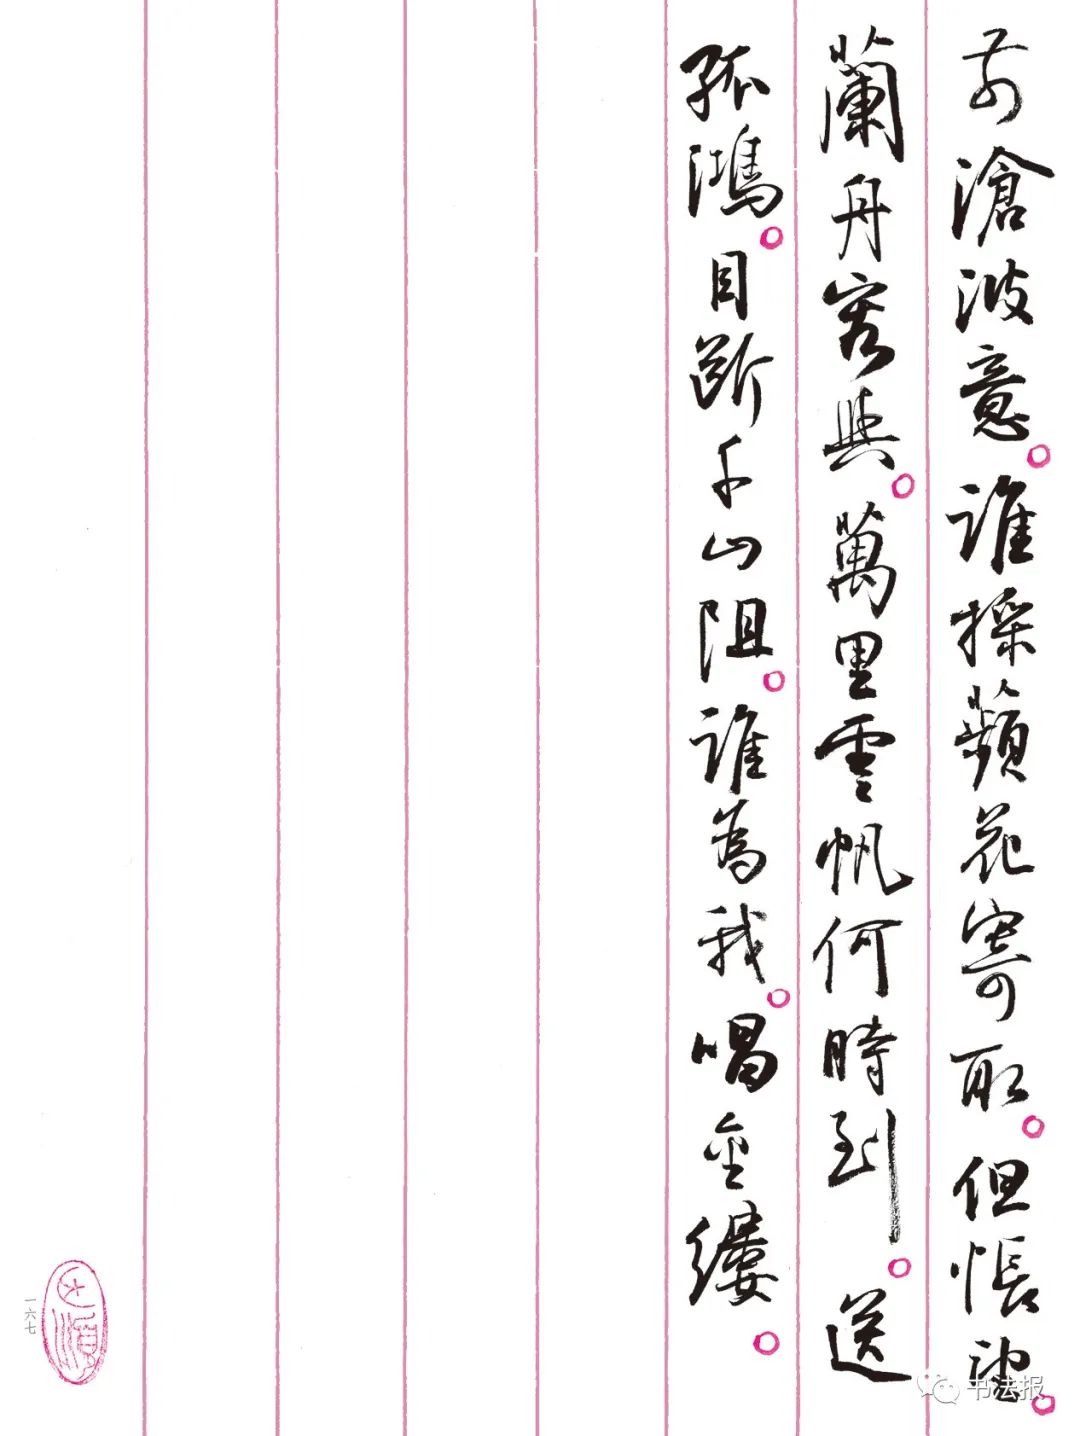 前滄波意。誰採蘋花寄取。但悵望。
蘭舟容與。萬里雲帆何時到。送
孤鴻。目断千山阻。誰為我。唱金縷。
一六七
书法报